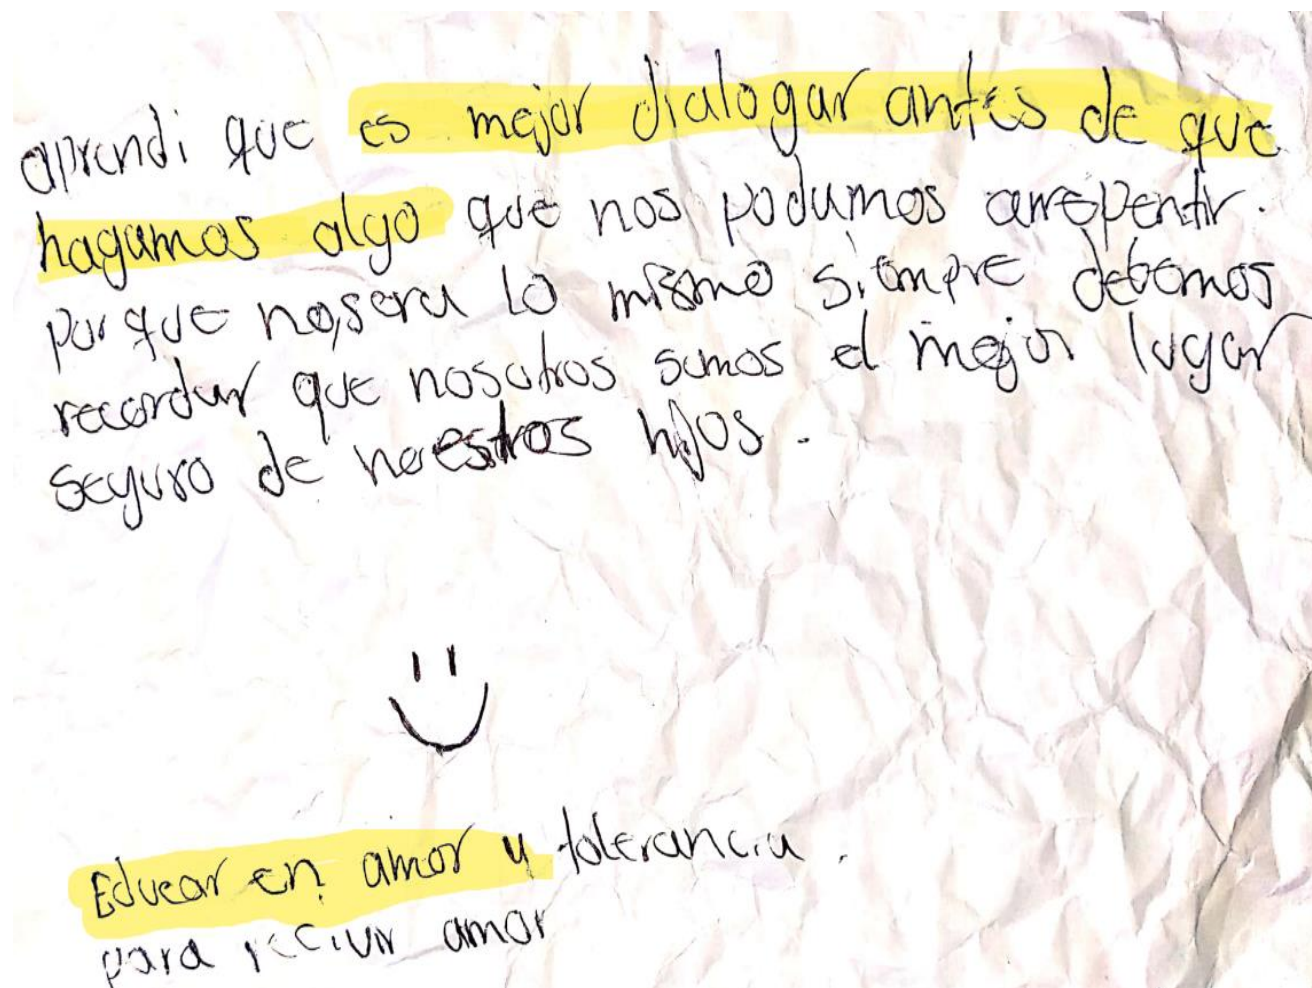 aprendi que es mejor dialogar antes de que
hagamos algo que nos podamos arrepentir.
por que no sera lo mismo siempre debemos
recordar que nosotros somos el mejor lugar
seguro de nuestros hijos.
Educar en amor y tolerancia.
para recivir amor